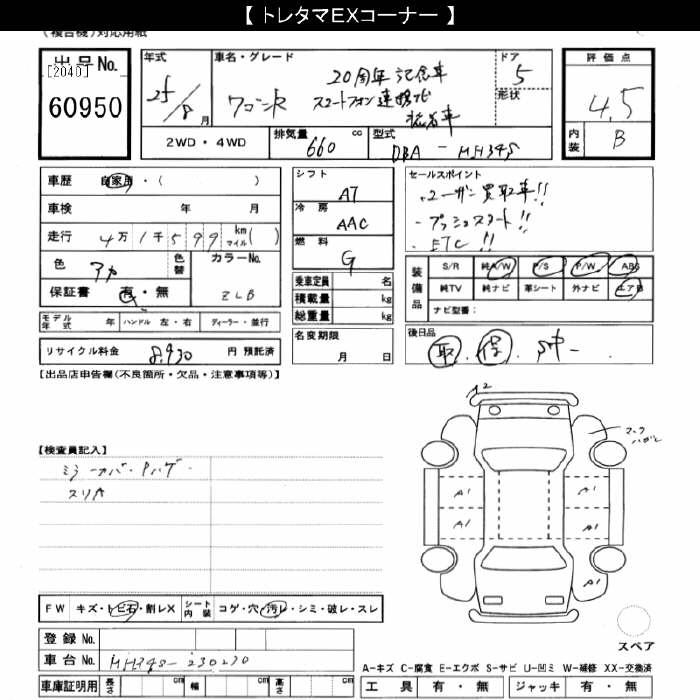 【 トレタマEXコーナー 】
(複合機)対応用紙
出品No.
[2040]
60950
年式
25/8 月
車名・グレード
ワゴンR
20周年記念車
スマートフォン連携ナビ
装着車
ドア
5
形状
評価点
4.5
内装 B
2WD・4WD
排気量 660 cc
型式 DBA-MH34S
車歴 自家用・( )
車検 年 月
走行 4万1千599 km マイル( )
色 アカ
色替
カラーNo.
ZLB
保証書 有・無
モデル年式 年 ハンドル 左・右 ディーラー・並行
リサイクル料金 8,930 円 預託済
シフト AT
冷房 AAC
燃料 G
乗車定員 名
積載量 kg
総重量 kg
名変期限
月 日
セールスポイント
・ユーザー買取車!!
・プッシュスタート!!
・ETC!!
装備品
S/R 純A/W P/S P/W ABS
純TV 純ナビ 革シート 外ナビ エアB
ナビ型番:
後日品
取・保・
【出品店申告欄(不良箇所・欠品・注意事項等)】
【検査員記入】
ミラーカバー・
スリA
A2
マーク
ハガレ
A1 A1
A1 A1
A1
FW キズ・トビ石・割レX シート内装 コゲ・穴・汚レ・シミ・破レ・スレ
登録No.
車台No. MH34S-230230
スペア
A-キズ C-腐食 E-エクボ S-サビ U-凹ミ W-補修 XX-交換済
車庫証明用 長さ cm 幅 cm 高さ cm
工具 有・無 ジャッキ 有・無